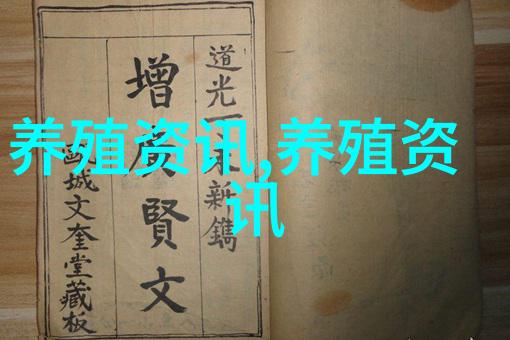 养殖资讯,养殖资
讯
道光
新鐫
增廣賢文
城文奎堂藏板